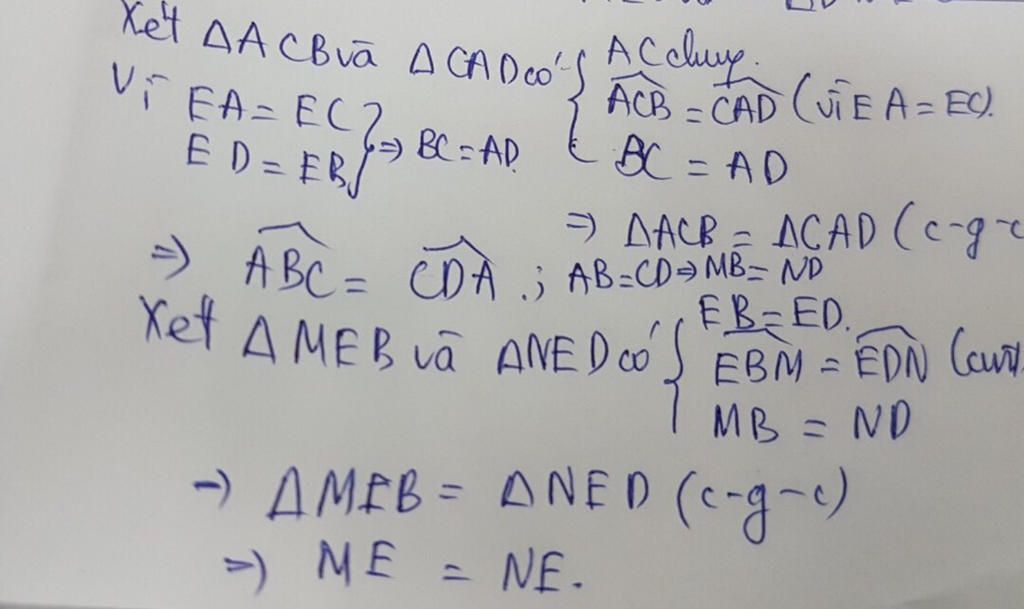 Xét ΔACB và ΔCAD có { AC chung.
Vì EA = EC } ⇒ BC = AD. ACB = CAD (vì EA = EC).
ED = EB BC = AD
⇒ ΔACB = ΔCAD (c-g-c
⇒ ABC = CDA .; AB=CD ⇒ MB = ND
Xét ΔMEB và ΔNED có { EB = ED.
EBM = EDN
MB = ND
→ ΔMEB = ΔNED (c-g-c)
⇒ ME = NE.